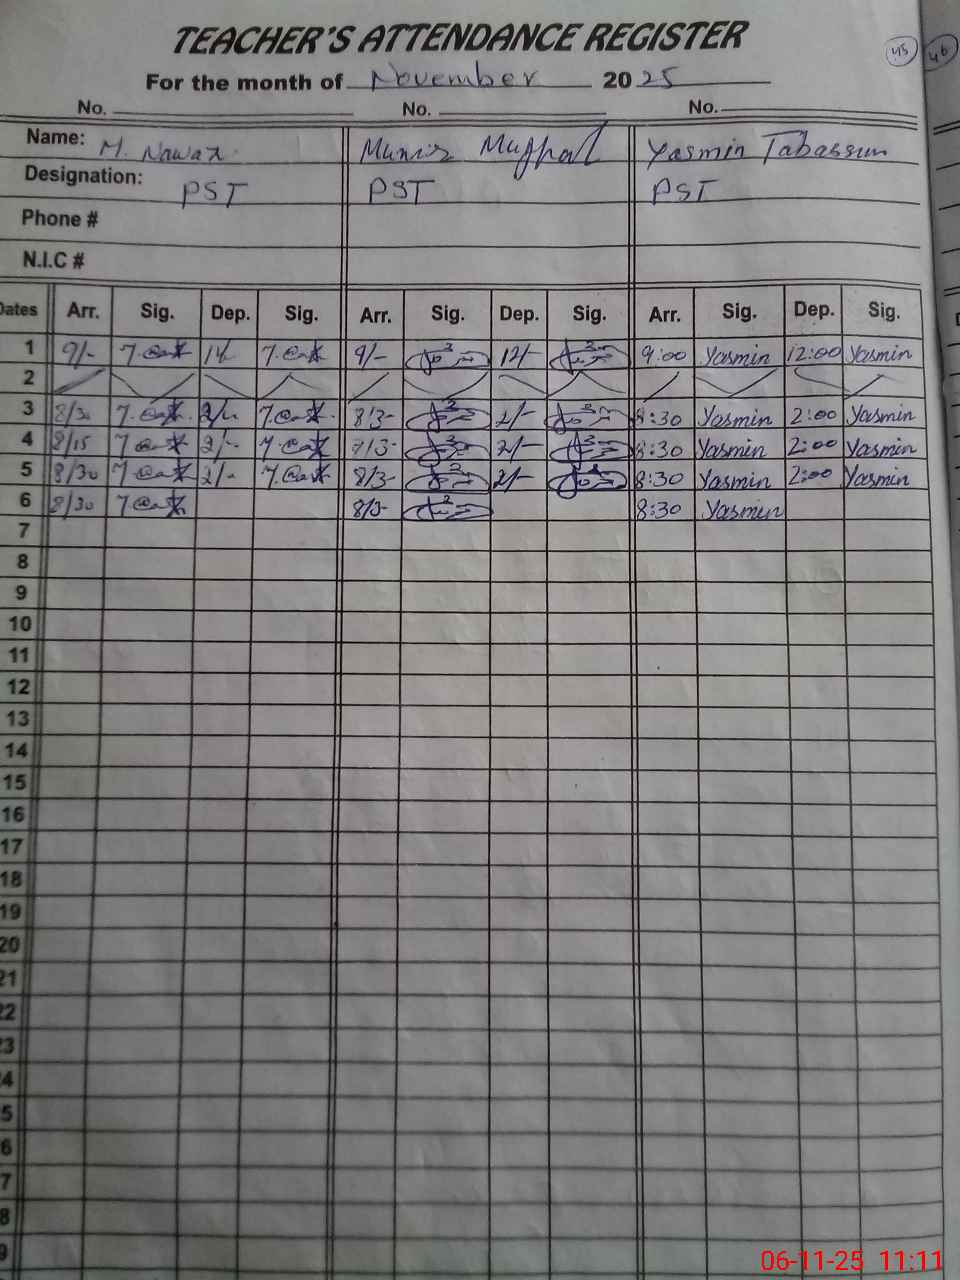 TEACHER'S ATTENDANCE REGISTER
45 46
For the month of November 2025
No. No. No.
Name: M. Nawaz Munir Mughal Yasmin Tabassum
Designation: PST PST PST
Phone #
N.I.C #
Dates Arr. Sig. Dep. Sig. Arr. Sig. Dep. Sig. Arr. Sig. Dep. Sig.
1 9/- 9/- 12/- 9:00 Yasmin 12:00 Yasmin
2
3 8/30 2/- 8/3- 2/- 8:30 Yasmin 2:00 Yasmin
4 8/15 2/- 2/- 8:30 Yasmin 2:00 Yasmin
5 8/30 2/- 8/3- 2/- 8:30 Yasmin 2:00 Yasmin
6 8/30 8/3- 8:30 Yasmin
7
8
9
10
11
12
13
14
15
16
17
18
19
20
21
22
23
4
5
6
7
8
9
06-11-25 11:11